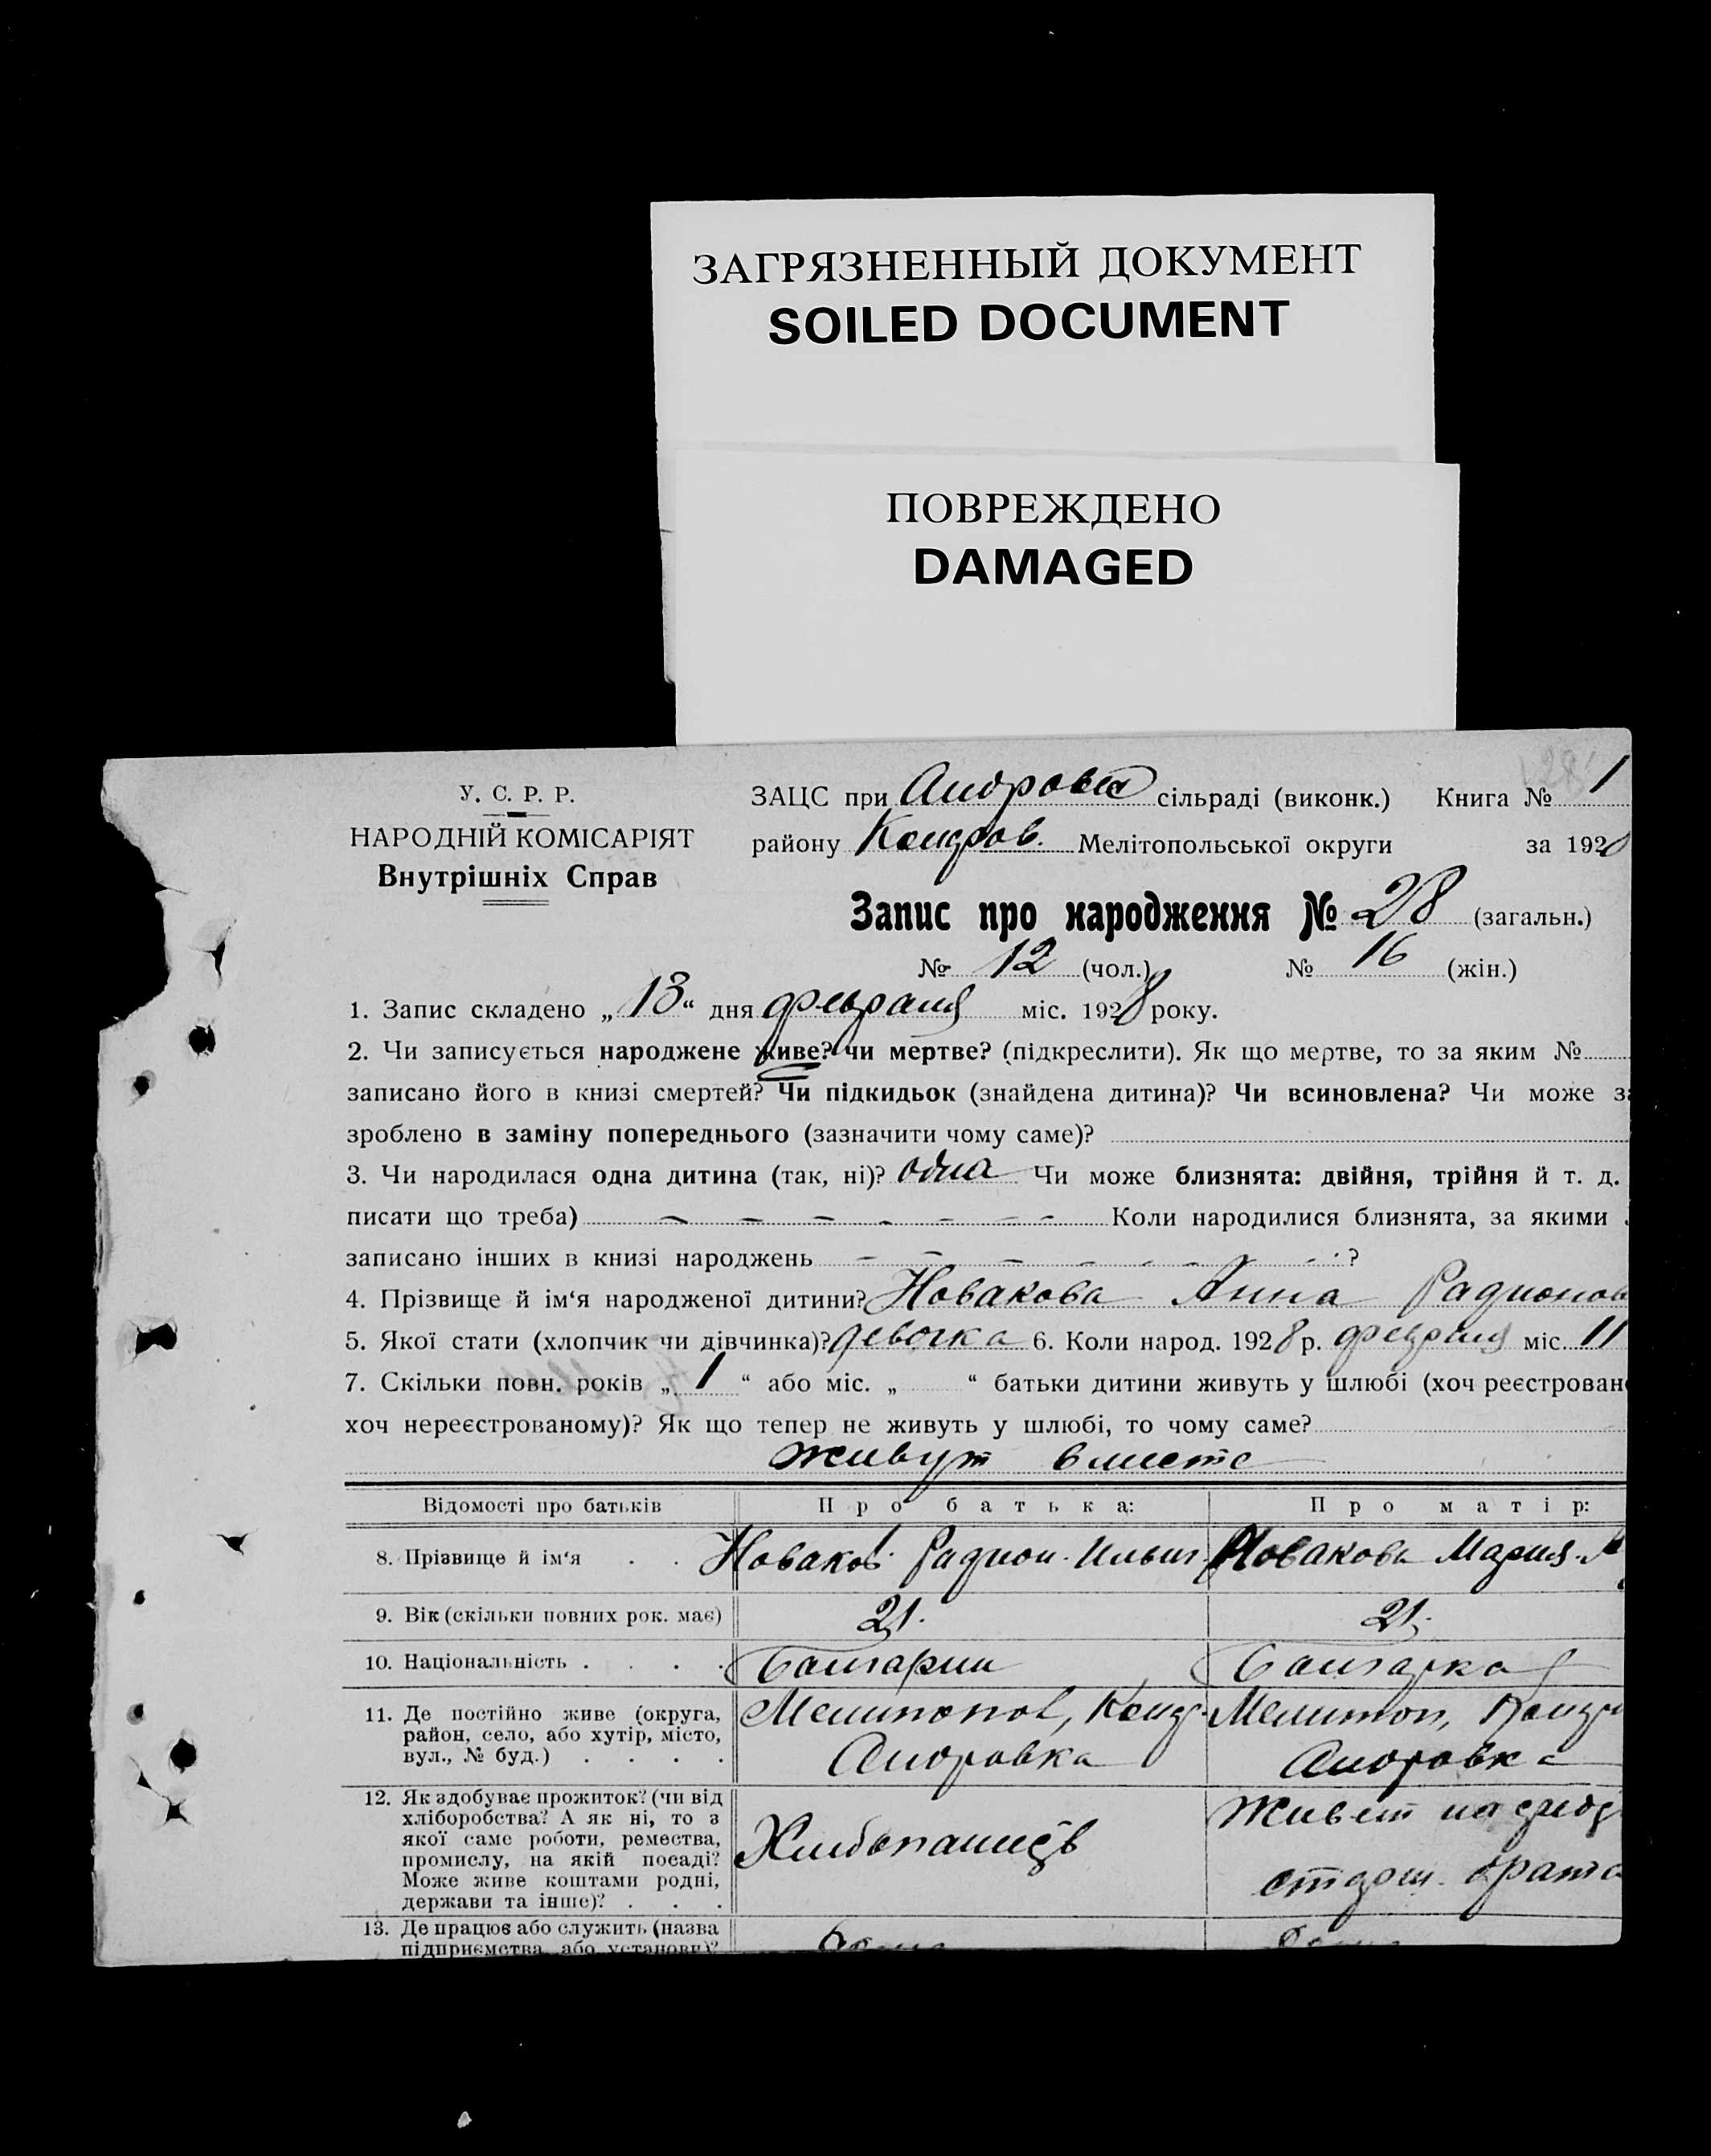 ЗАГРЯЗНЕННЫЙ ДОКУМЕНТ
SOILED DOCUMENT
ПОВРЕЖДЕНО
DAMAGED
У. С. Р. Р.
НАРОДНІЙ КОМІСАРІЯТ
Внутрішніх Справ
ЗАЦС при сільраді (виконк.) Книга № 1
району Мелітопольської округи за 1928
Запис про народження № 28 (загальн.)
№ 12 (чол.) № 16 (жін.)
1. Запис складено „13“ дня февраля міс. 1928 року.
2. Чи записується народжене живе? чи мертве? (підкреслити). Як що мертве, то за яким №
записано його в книзі смертей? Чи підкидьок (знайдена дитина)? Чи всиновлена? Чи може за
зроблено в заміну попереднього (зазначити чому саме)?
3. Чи народилася одна дитина (так, ні)? одна Чи може близнята: двійня, трійня й т. д.
писати що треба) — — — — — — — — Коли народилися близнята, за якими
записано інших в книзі народжень — — — — — — — ?
4. Прізвище й ім‘я народженої дитини? Новакова Анна Радионов
5. Якої стати (хлопчик чи дівчинка)? девочка 6. Коли народ. 1928 р. февраля міс. 11
7. Скільки повн. років „ 1 “ або міс. „ “ батьки дитини живуть у шлюбі (хоч реєстрован
хоч нереєстрованому)? Як що тепер не живуть у шлюбі, то чому саме?
живут вместе
Відомості про батьків Про батька: Про матір:
8. Прізвище й ім‘я . . Новаков Радион Ильич Новакова Мария
9. Вік (скільки повних рок. має) 21. 21.
10. Національність . . . . Болгарин Болгарка
11. Де постійно живе (округа,
район, село, або хутір, місто,
вул., № буд.) . . . .
Мелитопол, Андровка
Мелитоп, Андровка
12. Як здобуває прожиток? (чи від
хліборобства? А як ні, то з
якої саме роботи, ремества,
промислу, на якій посаді?
Може живе коштами родні,
держави та інше)? . . .
Живет на сред
брата
13. Де працює або служить (назва
підприємства або установи)?